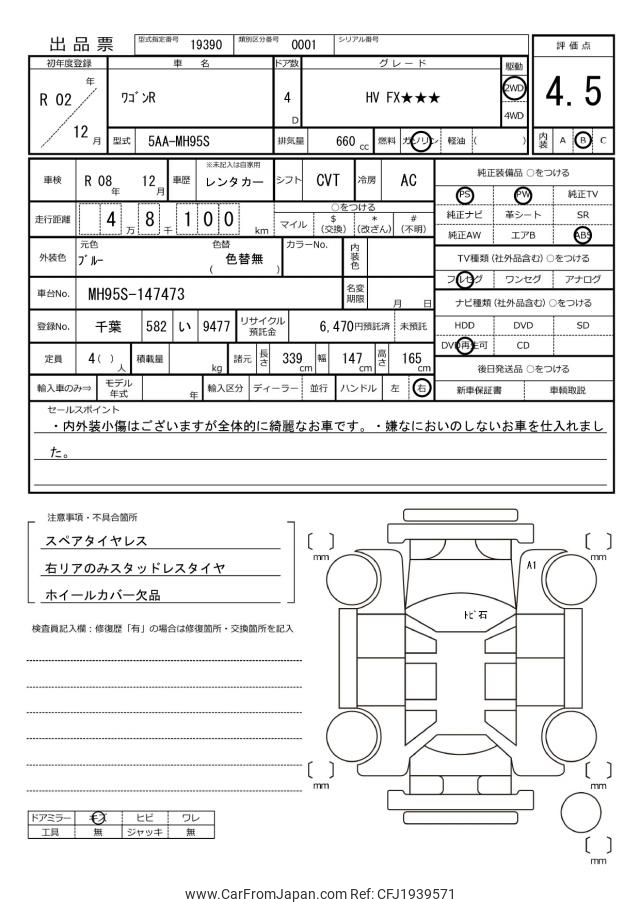 出品票 型式指定番号 19390 類別区分番号 0001 シリアル番号
評価点
4.5
内装 A B C
初年度登録 車名 ドア数 グレード 駆動
R 02 年 12 月 ワゴンR 4 D HV FX★★★ 2WD
4WD
型式 5AA-MH95S 排気量 660 cc 燃料 ガソリン 軽油 ( )
車検 R 08 年 12 月 車歴 ※未記入は自家用 レンタカー シフト CVT 冷房 AC
走行距離 4 万 8 千 1 0 0 km
○をつける
マイル $ (交換) * (改ざん) # (不明)
外装色 元色 ブルー 色替 ( 色替無 ) カラーNo. 内装色
車台No. MH95S-147473 名変期限 月 日
登録No. 千葉 582 い 9477 リサイクル預託金 6,470円預託済 未預託
定員 4( ) 人 積載量 kg 諸元 長さ 339 cm 幅 147 cm 高さ 165 cm
輸入車のみ⇒ モデル年式 年 輸入区分 ディーラー 並行 ハンドル 左 右
純正装備品 ○をつける
PS PW 純正TV
純正ナビ 革シート SR
純正AW エアB ABS
TV種類 (社外品含む) ○をつける
フルセグ ワンセグ アナログ
ナビ種類 (社外品含む) ○をつける
HDD DVD SD
DVD再生可 CD
後日発送品 ○をつける
新車保証書 車輌取説
セールスポイント
・内外装小傷はございますが全体的に綺麗なお車です。・嫌なにおいのしないお車を仕入れまし
た。
注意事項・不具合箇所
スペアタイヤレス
右リアのみスタッドレスタイヤ
ホイールカバー欠品
検査員記入欄：修復歴「有」の場合は修復箇所・交換箇所を記入
ドアミラー キズ ヒビ ワレ
工具 無 ジャッキ 無
mm
mm
A1
トビ石
mm
mm
mm
www.CarFromJapan.com Ref: CFJ1939571